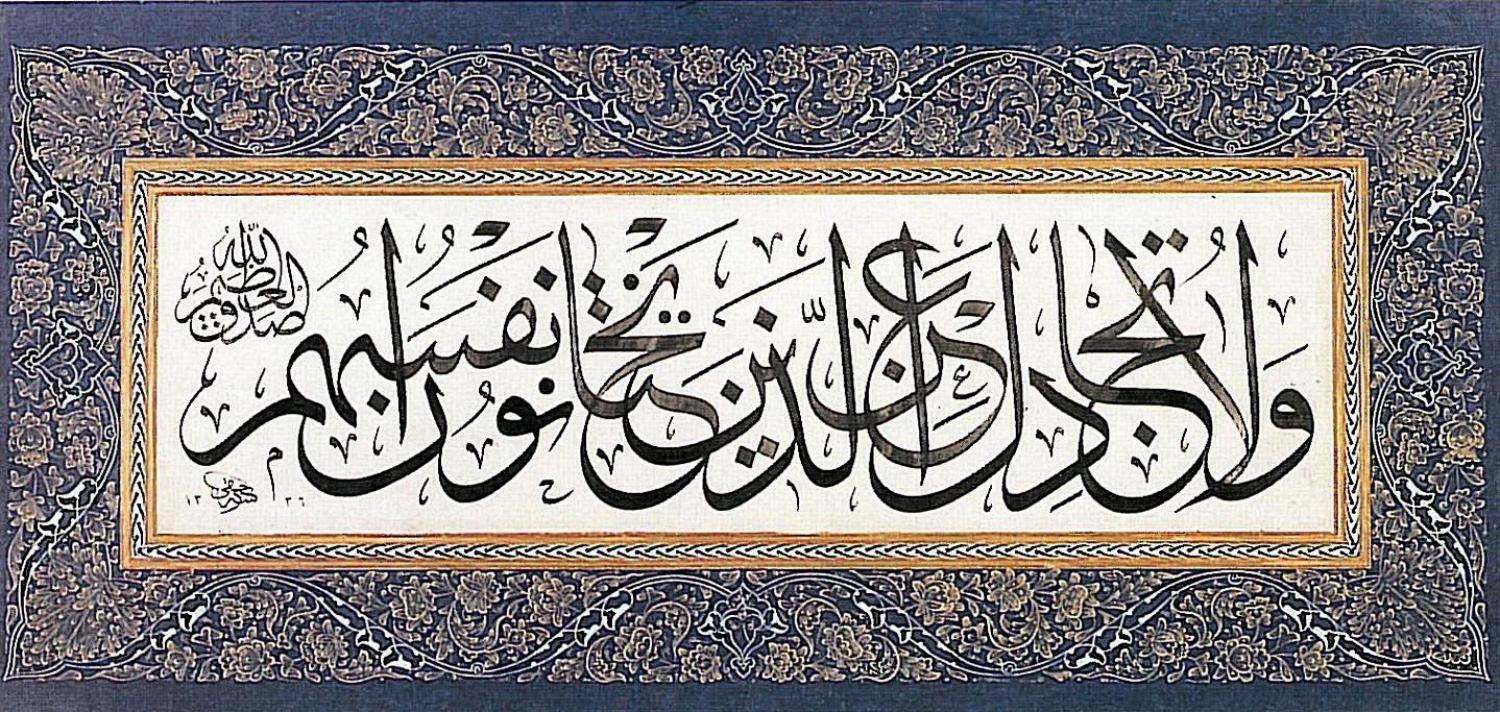 وَلَا تُجَادِلْ عَنِ الَّذِينَ يَخْتَانُونَ أَنْفُسَهُمْ
صدق الله العظيم